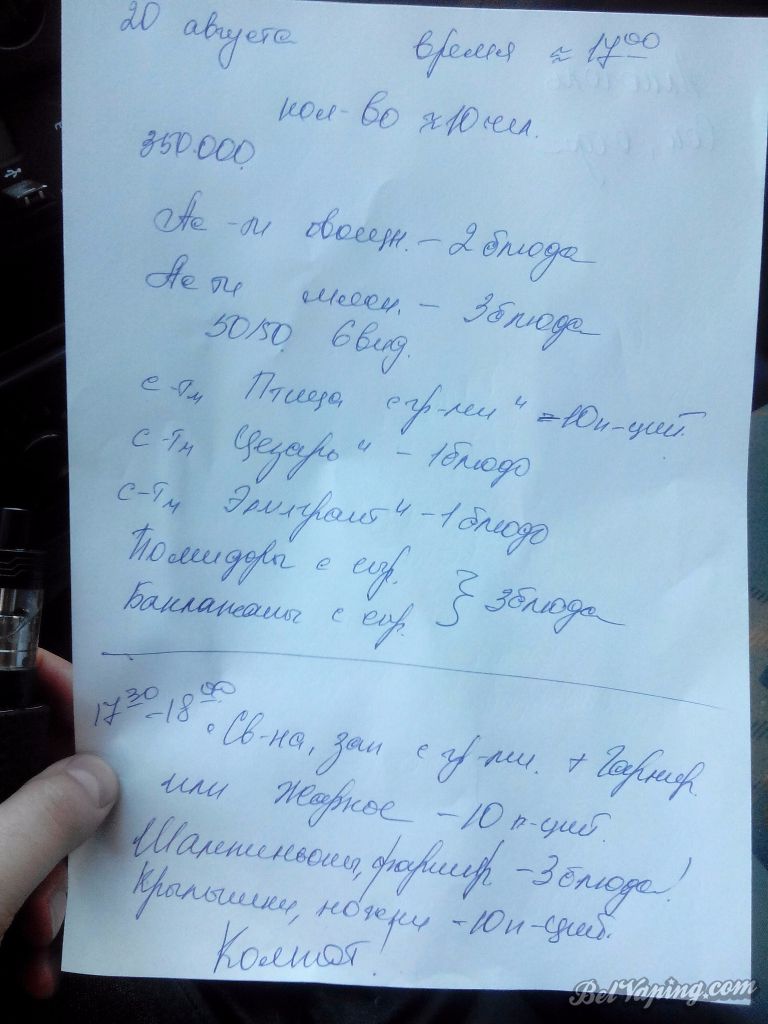 20 августа время ≈ 17⁰⁰
кол-во ≈ 10 чел.
350.000
Ас-ти овощн. – 2 блюда
Ас-ти мясн. – 3 блюда
50/50. 6 вид.
с-т „Птица с гр-ми" = 10 п-ций.
с-т „Цезарь" – 1 блюдо
с-т „Эмигрант" – 1 блюдо
Помидоры с сыр.
Баклажаны с сыр. } 3 блюда
17³⁰-18⁰⁰
Св-на, зап с гр-ми. + Гарнир.
или Жаркое – 10 п-ций.
Шампиньоны, фаршир – 3 блюда!
Крылышки, ножки – 10 п-ций.
Компот!
BelVaping.com